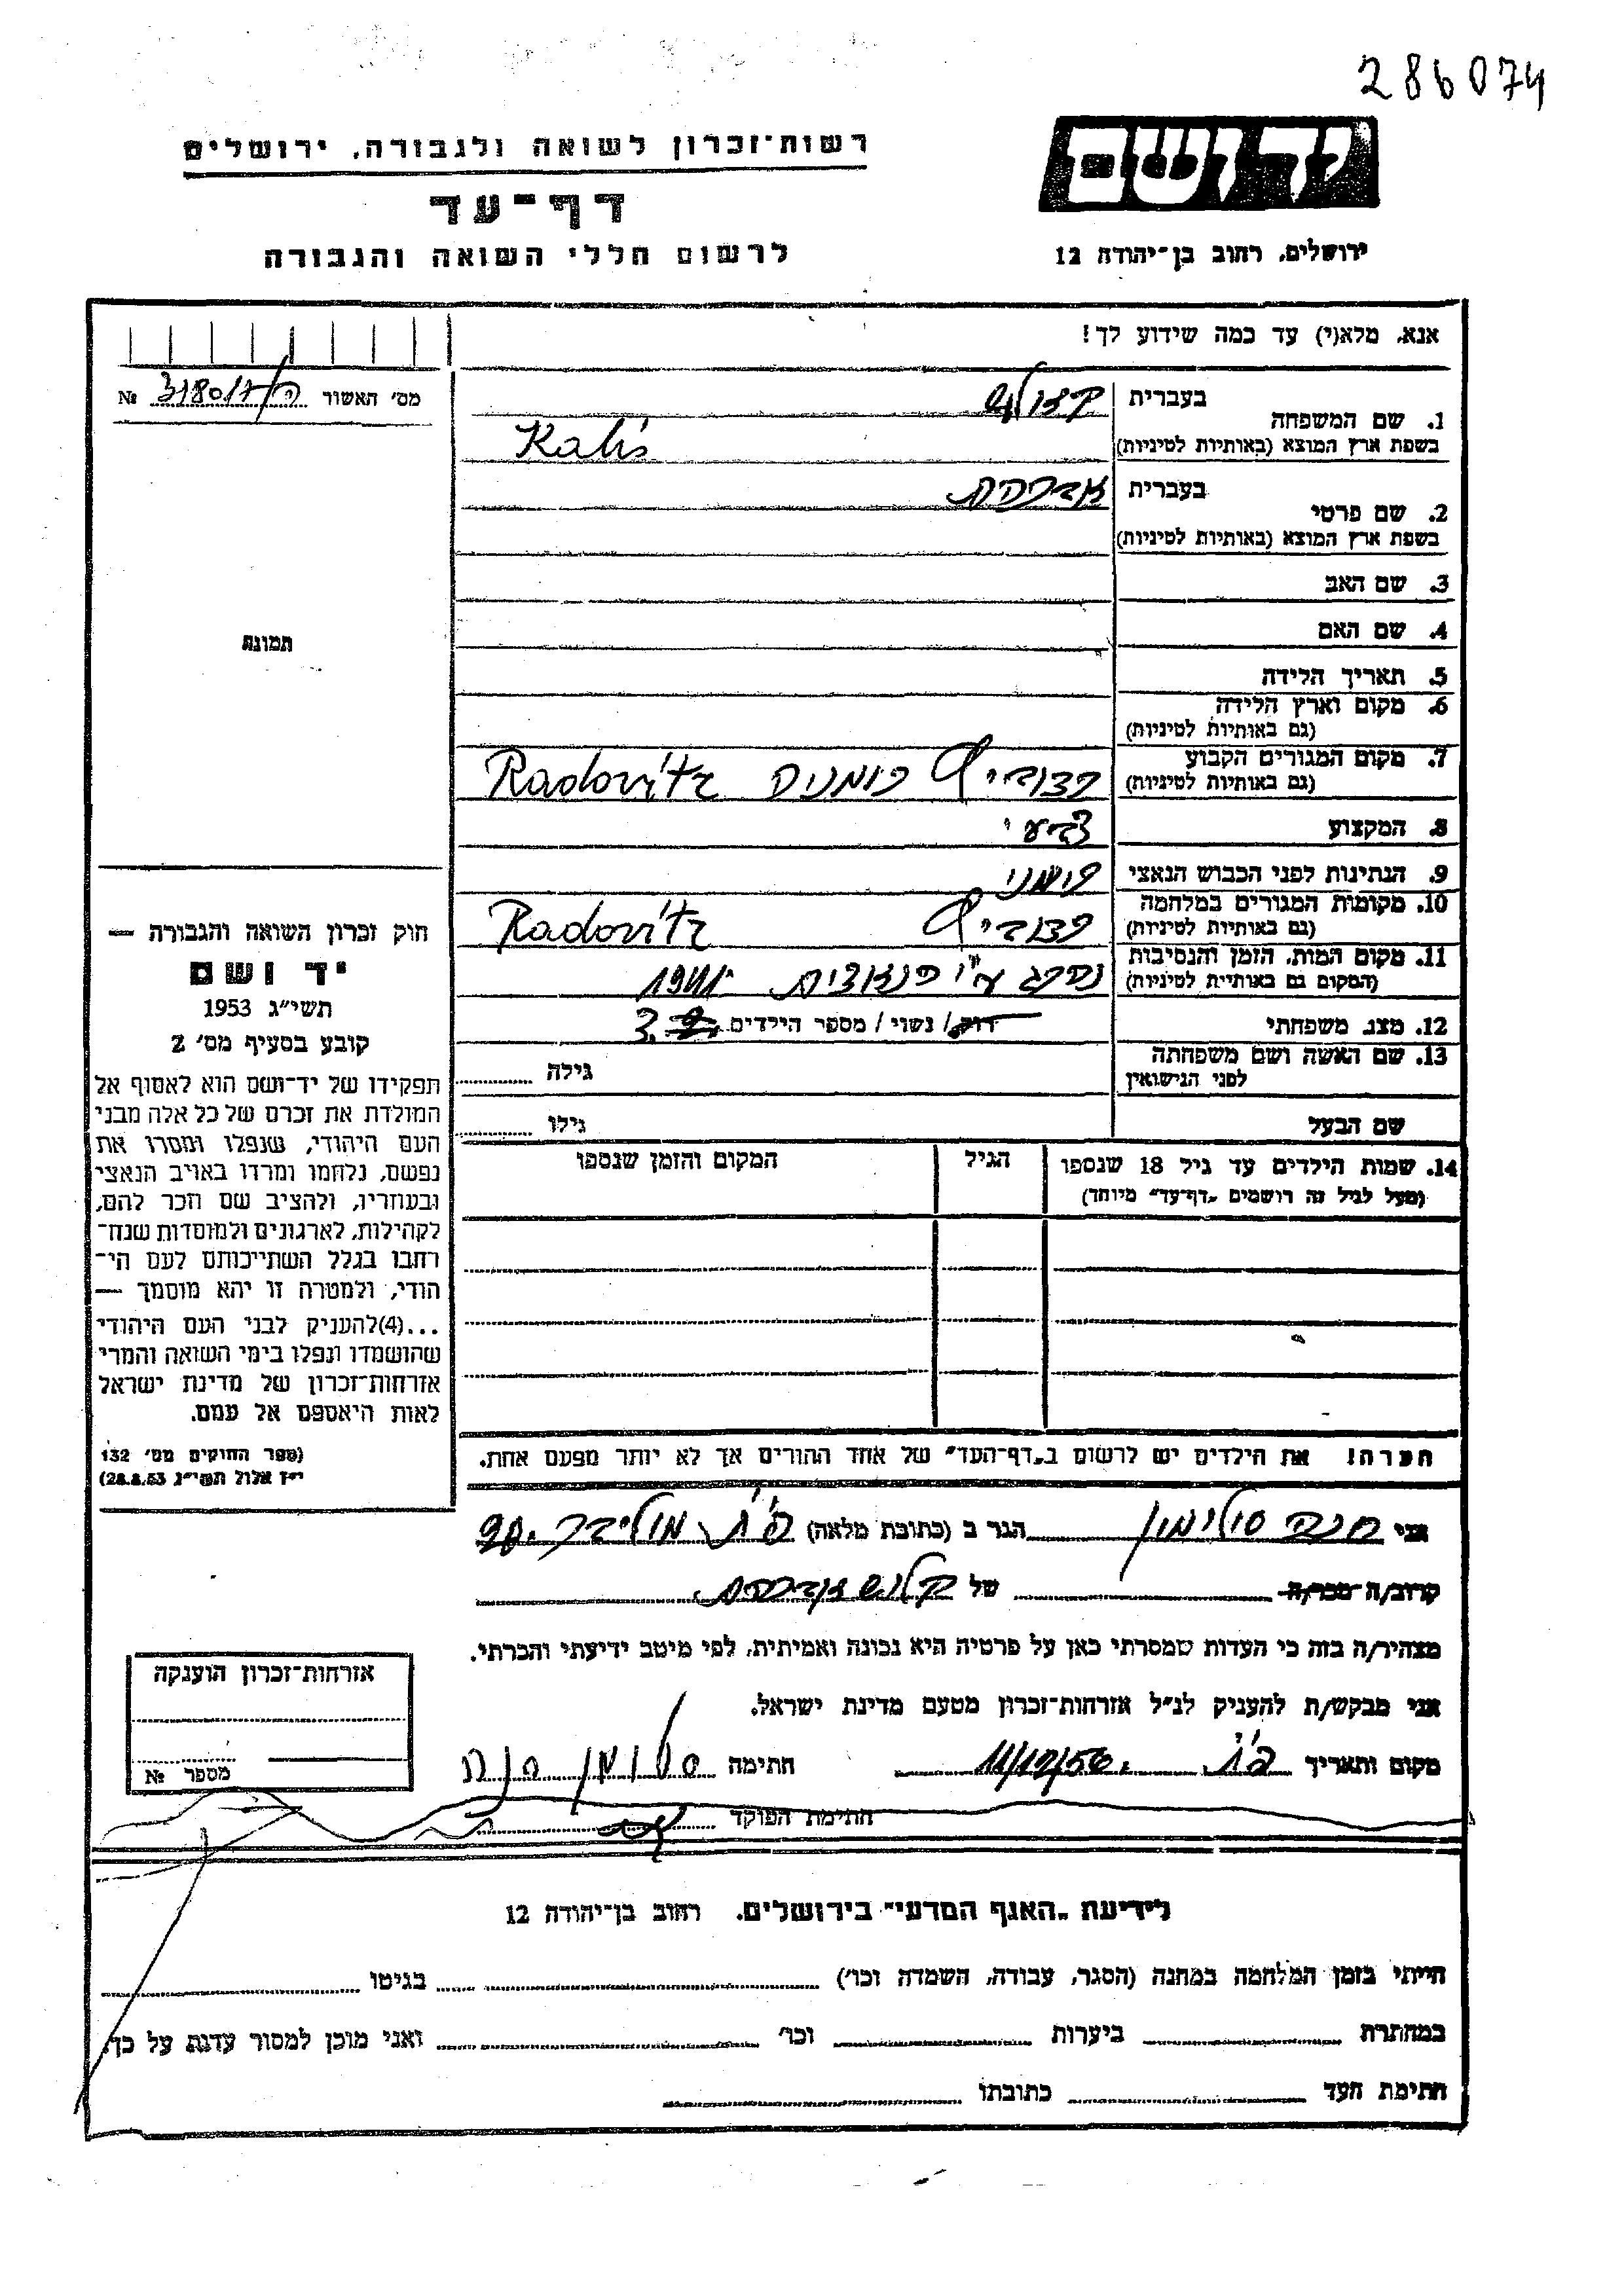 286074
יד ושם
רשות־זכרון לשואה ולגבורה, ירושלים
דף־עד
לרשום חללי השואה והגבורה
ירושלים, רחוב בן־יהודה 12
אנא, מלא(י) עד כמה שידוע לך!
מס׳ האשור № 
1. שם המשפחה בעברית
בשפת ארץ המוצא (באותיות לטיניות) Kalis
2. שם פרטי בעברית אברהם
בשפת ארץ המוצא (באותיות לטיניות)
3. שם האב
4. שם האם
5. תאריך הלידה
6. מקום וארץ הלידה
(גם באותיות לטיניות)
7. מקום המגורים הקבוע רדוביץ רומניה Radovitz
(גם באותיות לטיניות)
8. המקצוע צבעי
9. הנתינות לפני הכבוש הנאצי רומני
10. מקומות המגורים במלחמה רדוביץ Radovitz
(גם באותיות לטיניות)
11. מקום המות, הזמן והנסיבות נהרג ע"י 1941
(המקום גם באותיות לטיניות)
12. מצב משפחתי רוק/ נשוי/ מספר הילדים 3
13. שם האשה ושם משפחתה
לפני הנישואין גילה
שם הבעל גילו
14. שמות הילדים עד גיל 18 שנספו
(מעל לגיל זה רושמים „דף־עד״ מיוחד)
הגיל
המקום והזמן שנספו
תמונה
חוק זכרון השואה והגבורה —
יד ושם
תשי״ג 1953
קובע בסעיף מס׳ 2
תפקידו של יד־ושם הוא לאסוף אל
המולדת את זכרם של כל אלה מבני
העם היהודי, שנפלו ומסרו את
נפשם, נלחמו ומרדו באויב הנאצי
ובעוזריו, ולהציב שם וזכר להם,
לקהילות, לארגונים ולמוסדות שנח־
רבו בגלל השתייכותם לעם הי־
הודי, ולמטרה זו יהא מוסמך —
...(4)להעניק לבני העם היהודי
שהושמדו ונפלו בימי השואה והמרי
אזרחות־זכרון של מדינת ישראל
לאות היאספם אל עמם.
(ספר החוקים מס׳ 132
י״ז אלול תשי״ג 28.8.53)
הערה! את הילדים יש לרשום ב„דף־העד״ של אחד ההורים אך לא יותר מפעם אחת.
אני חנה סולימון הגר ב (כתובת מלאה)
קרוב/ה מכר/ה של קליש אברהם
מצהיר/ה בזה כי העדות שמסרתי כאן על פרטיה היא נכונה ואמיתית, לפי מיטב ידיעתי והכרתי.
אני מבקש/ת להעניק לנ״ל אזרחות־זכרון מטעם מדינת ישראל.
מקום ותאריך 11/12/56 חתימה
חתימת הפוקד
אזרחות־זכרון הוענקה
מספר №
לידיעת „האגף המדעי״ בירושלים, רחוב בן־יהודה 12
הייתי בזמן המלחמה במחנה (הסגר, עבודה, השמדה וכו׳) בגיטו
במחתרת ביערות וכו׳ ואני מוכן למסור עדות על כך.
חתימת העד כתובתו